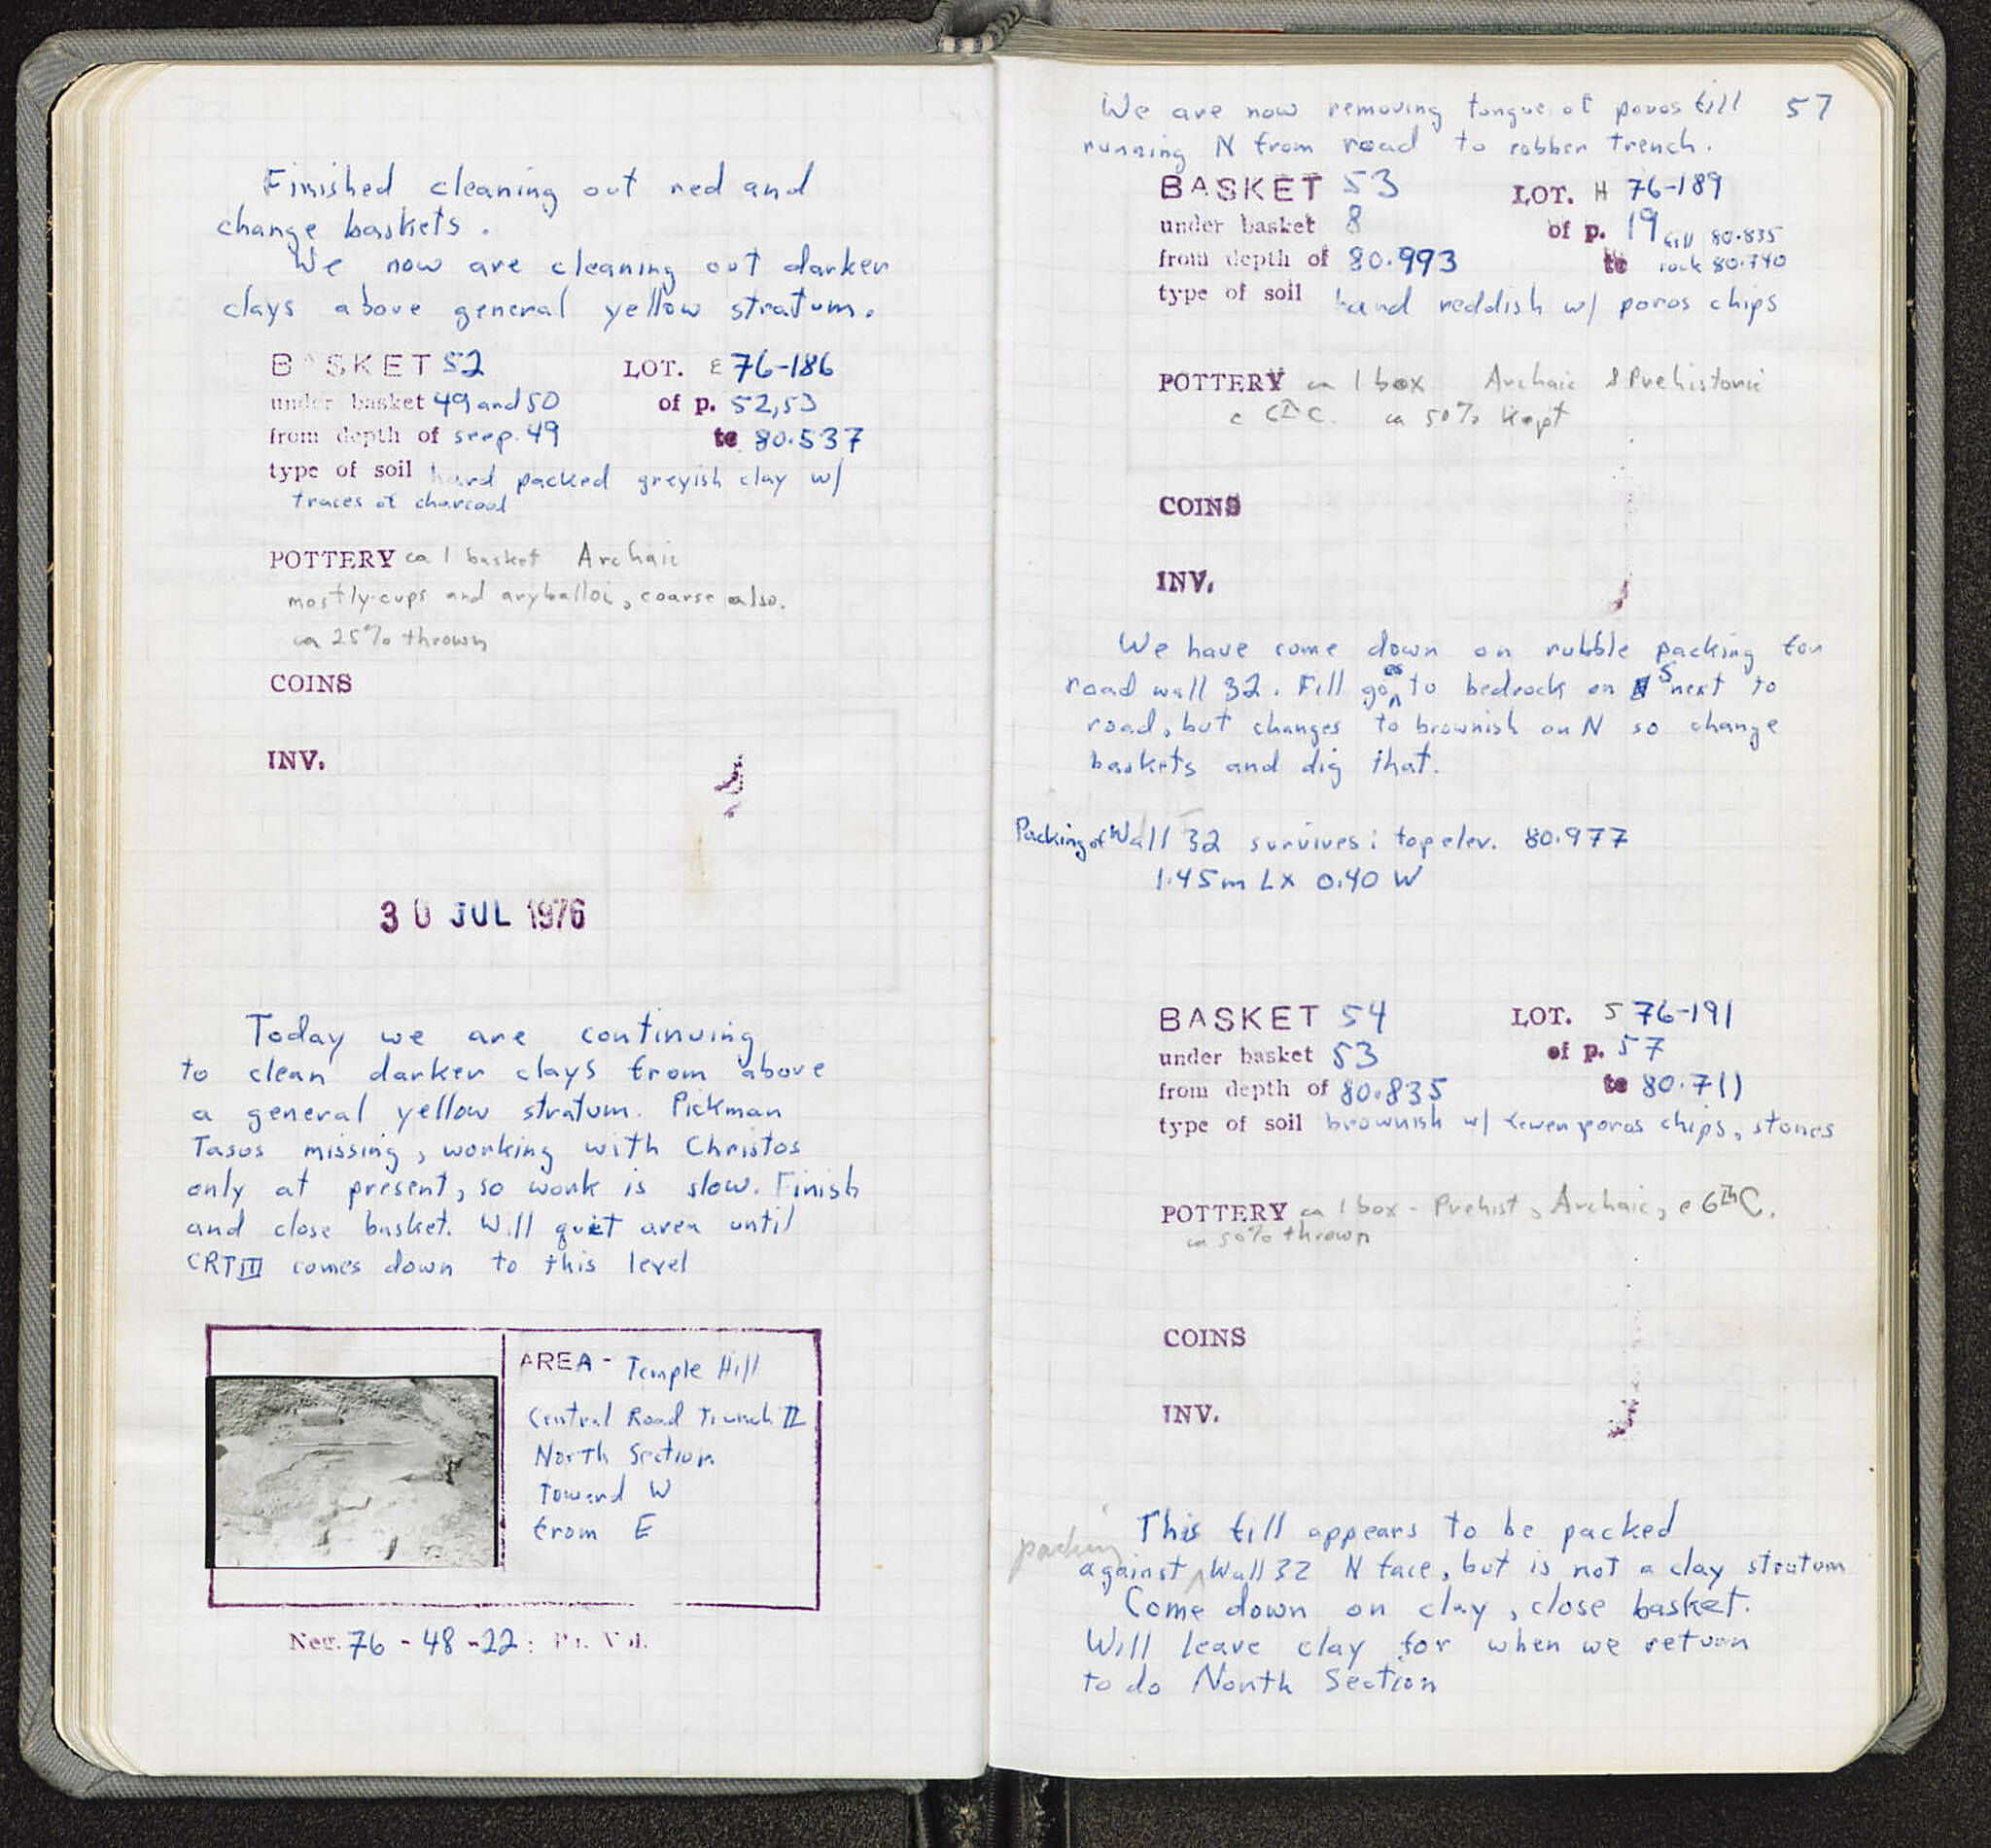 Finished cleaning out red and
change baskets.
We now are cleaning out darker
clays above general yellow stratum.
BASKET 52 LOT. E 76-186
under basket 49 and 50 of p. 52,53
from depth of see p. 49 to 80.537
type of soil hard packed greyish clay w/
traces of charcoal
POTTERY ca 1 basket Archaic
mostly cups and aryballoi, coarse also.
ca 25% thrown
COINS
INV.
30 JUL 1976
Today we are continuing
to clean darker clays from above
a general yellow stratum. Pickman
Tasos missing, working with Christos
only at present, so work is slow. Finish
and close basket. Will quit area until
CRTIII comes down to this level
AREA - Temple Hill
Central Road Trench II
North Section
Toward W
from E
Neg. 76 - 48 - 22 : Pr. Vol.
We are now removing tongue of poros fill 57
running N from road to robber trench.
BASKET 53 LOT. H 76-189
under basket 8 of p. 19
fill 80.835
from depth of 80.993 to rock 80.740
type of soil hard reddish w/ poros chips
POTTERY ca 1 box Archaic & Prehistoric
ca 50% kept
COINS
INV.
We have come down on rubble packing for
road wall 32. Fill goes to bedrock on S next to
road, but changes to brownish on N so change
baskets and dig that.
Packing of Wall 32 survives: top elev. 80.977
1.45m L x 0.40 W
BASKET 54 LOT. 5 76-191
under basket 53 of p. 57
from depth of 80.835 to 80.711
type of soil brownish w/ fewer poros chips, stones
POTTERY ca 1 box - Prehist, Archaic, e 6th C.
ca 50% thrown
COINS
INV.
This fill appears to be packed
packing
against ^ Wall 32 N face, but is not a clay stratum
Come down on clay, close basket.
Will leave clay for when we return
to do North Section